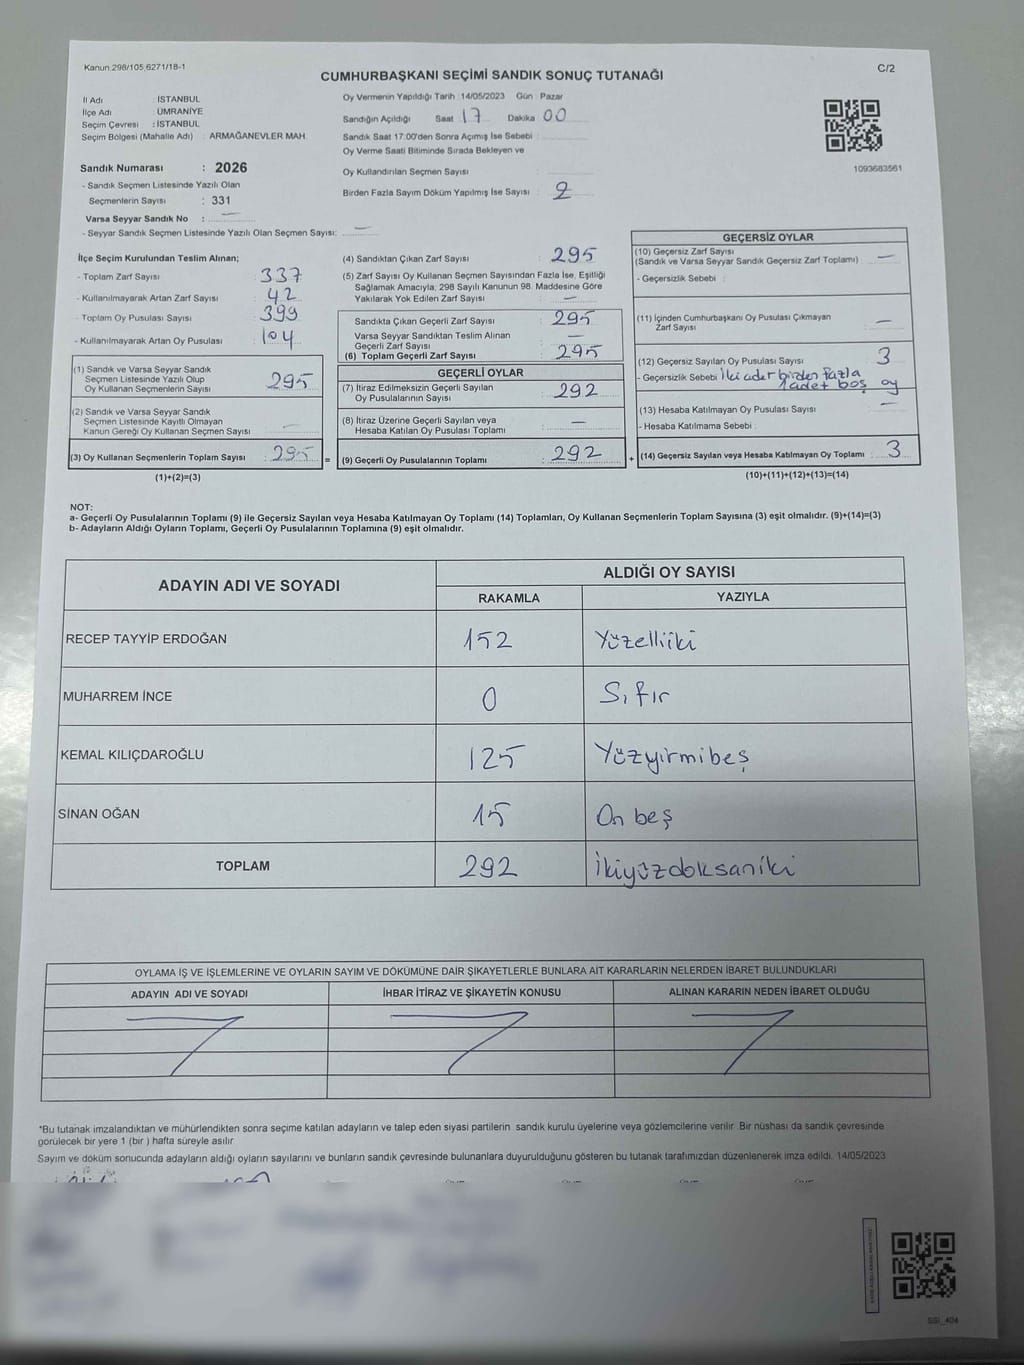 Kanun:298/105,6271/18-1
C/2
CUMHURBAŞKANI SEÇİMİ SANDIK SONUÇ TUTANAĞI
İl Adı : İSTANBUL
İlçe Adı : ÜMRANİYE
Seçim Çevresi : İSTANBUL
Seçim Bölgesi (Mahalle Adı) : ARMAĞANEVLER MAH.
Sandık Numarası : 2026
- Sandık Seçmen Listesinde Yazılı Olan
Seçmenlerin Sayısı : 331
Varsa Seyyar Sandık No : —
- Seyyar Sandık Seçmen Listesinde Yazılı Olan Seçmen Sayısı: —
Oy Vermenin Yapıldığı Tarih :14/05/2023 Gün : Pazar
Sandığın Açıldığı Saat : 17 Dakika : 00
Sandık Saat 17:00'den Sonra Açımış İse Sebebi :
Oy Verme Saati Bitiminde Sırada Bekleyen ve
Oy Kullandırılan Seçmen Sayısı :
Birden Fazla Sayım Döküm Yapılmış İse Sayısı : 2
1093683561
İlçe Seçim Kurulundan Teslim Alınan;
- Toplam Zarf Sayısı : 337
- Kullanılmayarak Artan Zarf Sayısı : 42
- Toplam Oy Pusulası Sayısı : 399
- Kullanılmayarak Artan Oy Pusulası : 104
(1) Sandık ve Varsa Seyyar Sandık
Seçmen Listesinde Yazılı Olup
Oy Kullanan Seçmenlerin Sayısı : 295
(2) Sandık ve Varsa Seyyar Sandık
Seçmen Listesinde Kayıtlı Olmayan
Kanun Gereği Oy Kullanan Seçmen Sayısı : —
(3) Oy Kullanan Seçmenlerin Toplam Sayısı : 295 =
(1)+(2)=(3)
(4) Sandıktan Çıkan Zarf Sayısı : 295
(5) Zarf Sayısı Oy Kullanan Seçmen Sayısından Fazla İse, Eşitliği
Sağlamak Amacıyla, 298 Sayılı Kanunun 98. Maddesine Göre
Yakılarak Yok Edilen Zarf Sayısı : —
Sandıkta Çıkan Geçerli Zarf Sayısı : 295
Varsa Seyyar Sandıktan Teslim Alınan
Geçerli Zarf Sayısı : —
(6) Toplam Geçerli Zarf Sayısı : 295
GEÇERLİ OYLAR
(7) İtiraz Edilmeksizin Geçerli Sayılan
Oy Pusulalarının Sayısı : 292
(8) İtiraz Üzerine Geçerli Sayılan veya
Hesaba Katılan Oy Pusulası Toplamı : —
(9) Geçerli Oy Pusulalarının Toplamı : 292 +
GEÇERSİZ OYLAR
(10) Geçersiz Zarf Sayısı
(Sandık ve Varsa Seyyar Sandık Geçersiz Zarf Toplamı) : —
- Geçersizlik Sebebi :
(11) İçinden Cumhurbaşkanı Oy Pusulası Çıkmayan
Zarf Sayısı : —
(12) Geçersiz Sayılan Oy Pusulası Sayısı : 3
- Geçersizlik Sebebi : İki adet birden fazla
1 adet boş oy
(13) Hesaba Katılmayan Oy Pusulası Sayısı : —
- Hesaba Katılmama Sebebi :
(14) Geçersiz Sayılan veya Hesaba Katılmayan Oy Toplamı : 3
(10)+(11)+(12)+(13)=(14)
NOT:
a- Geçerli Oy Pusulalarının Toplamı (9) ile Geçersiz Sayılan veya Hesaba Katılmayan Oy Toplamı (14) Toplamları, Oy Kullanan Seçmenlerin Toplam Sayısına (3) eşit olmalıdır. (9)+(14)=(3)
b- Adayların Aldığı Oyların Toplamı, Geçerli Oy Pusulalarının Toplamına (9) eşit olmalıdır.
ADAYIN ADI VE SOYADI
ALDIĞI OY SAYISI
RAKAMLA YAZIYLA
RECEP TAYYİP ERDOĞAN 152 Yüzelliiki
MUHARREM İNCE 0 Sıfır
KEMAL KILIÇDAROĞLU 125 Yüzyirmibeş
SİNAN OĞAN 15 On beş
TOPLAM 292 İkiyüzdoksaniki
OYLAMA İŞ VE İŞLEMLERİNE VE OYLARIN SAYIM VE DÖKÜMÜNE DAİR ŞİKAYETLERLE BUNLARA AİT KARARLARIN NELERDEN İBARET BULUNDUKLARI
ADAYIN ADI VE SOYADI İHBAR İTİRAZ VE ŞİKAYETİN KONUSU ALINAN KARARIN NEDEN İBARET OLDUĞU
*Bu tutanak imzalandıktan ve mühürlendikten sonra seçime katılan adayların ve talep eden siyasi partilerin sandık kurulu üyelerine veya gözlemcilerine verilir. Bir nüshası da sandık çevresinde
görülecek bir yere 1 (bir ) hafta süreyle asılır.
Sayım ve döküm sonucunda adayların aldığı oyların sayılarını ve bunların sandık çevresinde bulunanlara duyurulduğunu gösteren bu tutanak tarafımızdan düzenlenerek imza edildi. 14/05/2023
SSI_404